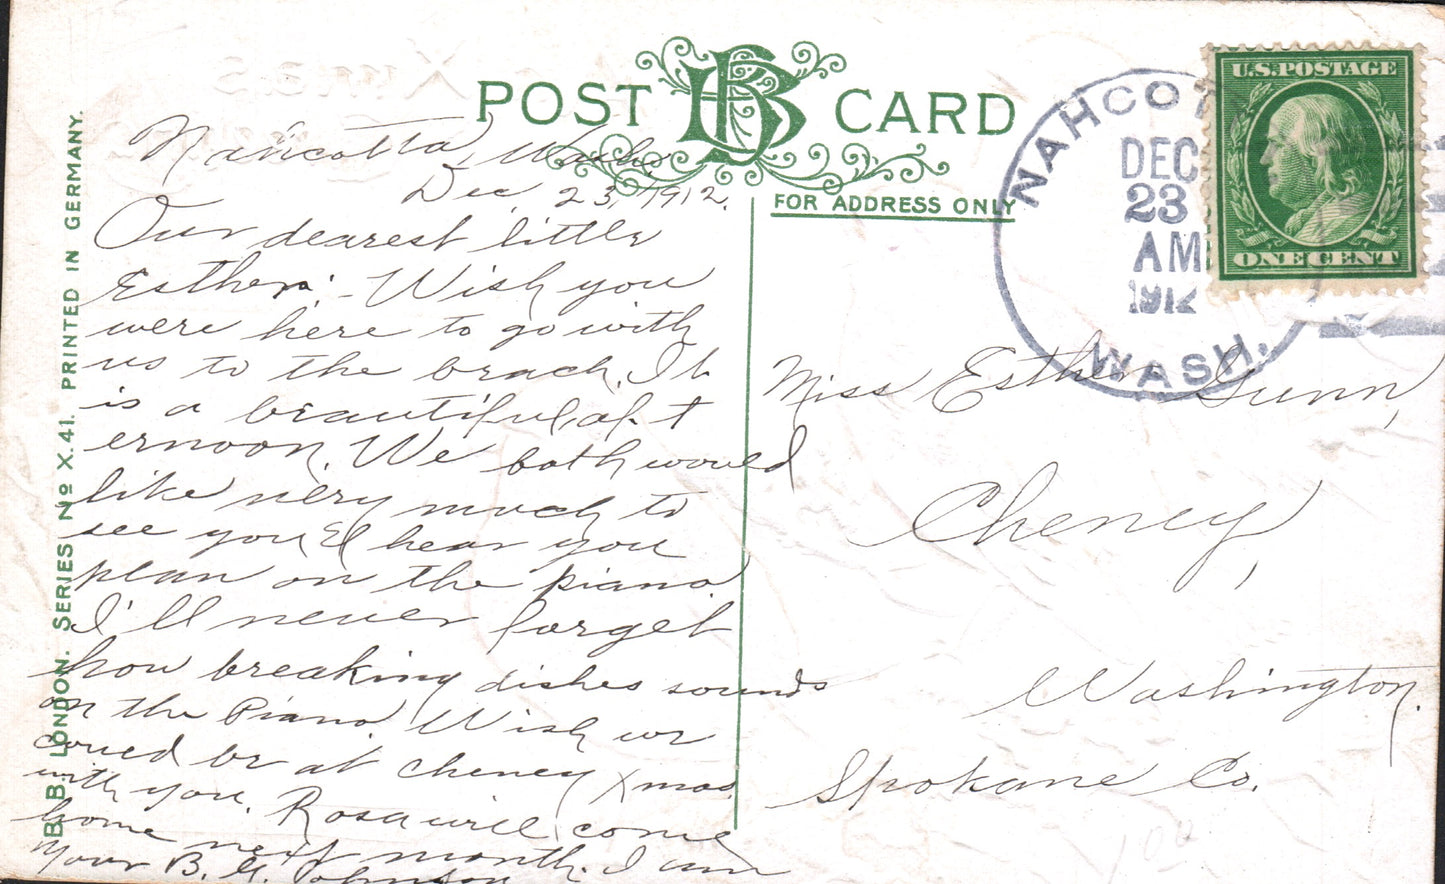 POST CARD
FOR ADDRESS ONLY
Nahcotta, Wash.
Dec. 23, 1912.
Our dearest little
Esther: - Wish you
were here to go with
us to the beach. It
is a beautiful aft
ernoon. We both would
like very much to
see you & hear you
plan on the piano.
I'll never forget
how breaking dishes sounds
on the Piano. Wish we
could be at Cheney Xmas.
with you. Rosa will come
home next month. I am
Your B. G. Johnson
NAHCOT
DEC
23
AM
1912
WASH.
U.S.POSTAGE
ONE CENT
Miss Esther Gunn,
Cheney,
Washington.
Spokane Co.
B. B. LONDON. SERIES No X.41. PRINTED IN GERMANY.
Xmas
100